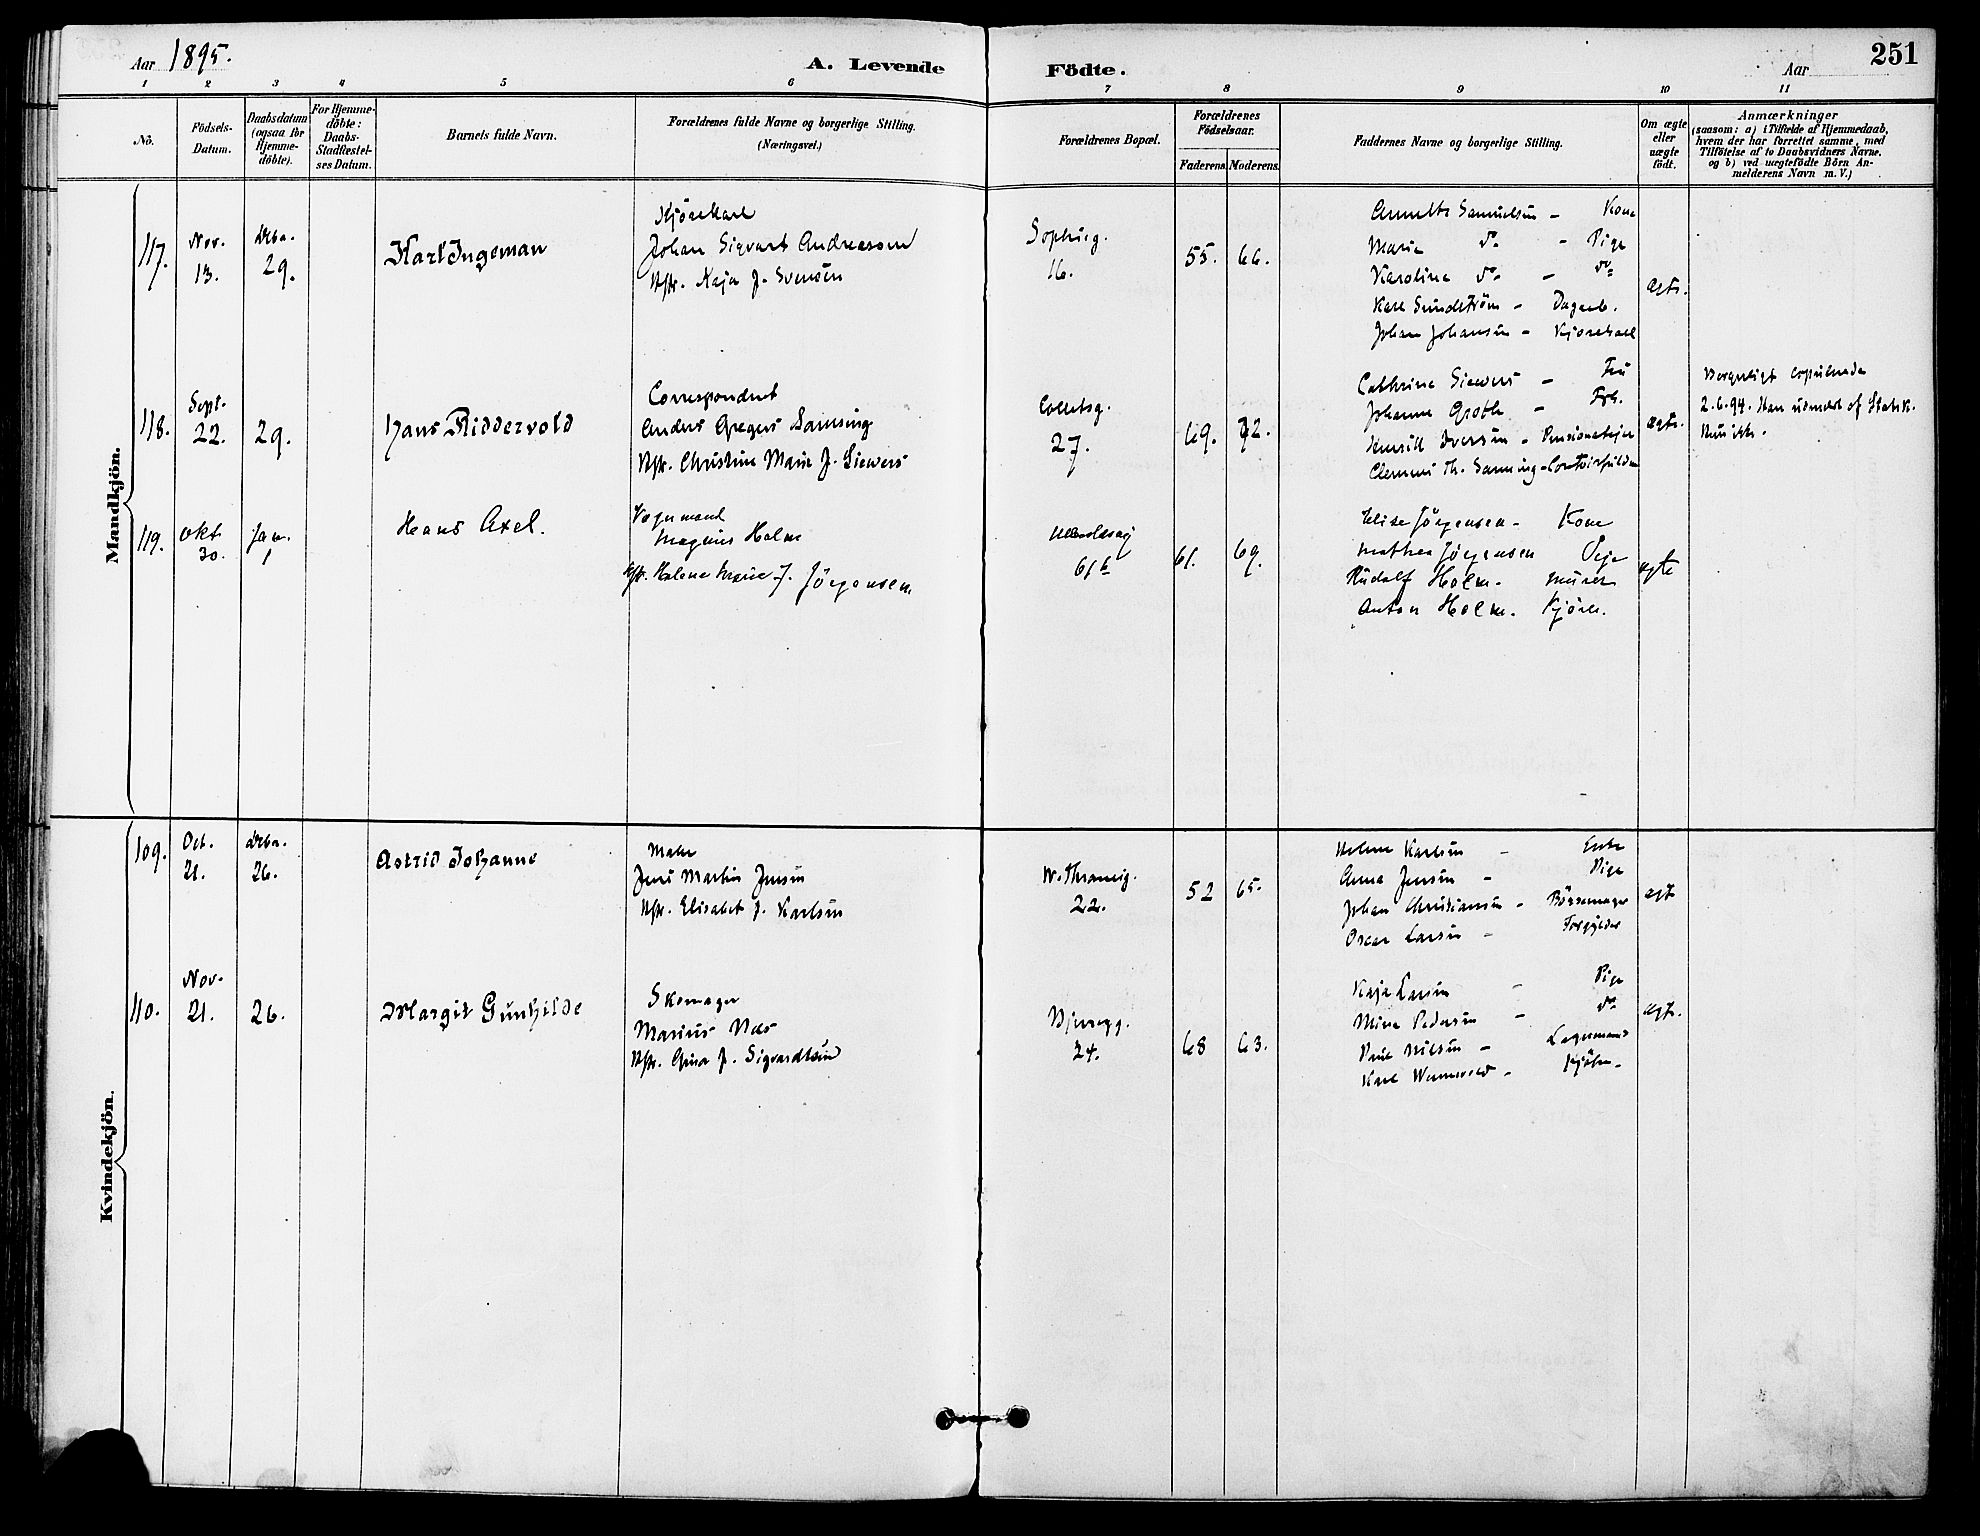 Aar 1895.
A. Levende Födte.
Aar
251
1 2 3 4 5 6 7 8 9 10 11
No.
Födsels-
Datum.
Daabsdatum
(ogsaa for
Hjemme-
döbte).
For Hjemme-
döbte:
Daabs-
Stadfæstel-
ses Datum.
Barnets fulde Navn.
Forældrenes fulde Navne og borgerlige Stilling.
(Næringsvei.)
Forældrenes Bopæl.
Forældrenes
Födselsaar.
Faderens. Moderens.
Faddernes Navne og borgerlige Stilling.
Om ægte
eller
uægte
født.
Anmærkninger
(saasom: a) i Tilfælde af Hjemmedaab,
hvem der har forrettet samme, med
Tilföielse af to Daabsvidners Navne.
og b) ved uægtefödte Börn An-
melderens Navn m. V.)
Mandkjön.
117.
Nov.
13.
Deba.
29.
Karl Ingeman
Kjörekarl
Johan Sigvart Andreasen
Hstr. Kaja f. Svensen
Sophieg.
16.
55. 66.
Annette Samuelsen - Kone
Maria do - Pige
Karoline do - do
Karl Sundström - Dagarb.
Johan Johansen - Kjörekarl
ægte.
118.
Sept.
22.
29.
Hans Riddervold
Correspondent
Anders Gregers Samsing
Hstr. Christine Marie f. Siewers
Colletsg.
27.
69. 72.
Cathrine Siewers - Fru
Johanne Groth - Frk.
Iversen - Pensionatejer
Clemens Th. Samsing -
ægte.
Borgerligt copulerede
2.6.94. Han udmeldt af Statsk.
Hun ikke.
119.
Okt
30.
Jan.
1
Hans Axel.
Vognmand
Magnus Holm
Hstr. Helene Marie f. Jörgensen
Ullevoldsvej
61 b
61. 69.
Elise Jörgensen - Kone
Mathea Jörgensen Pige
Rudolf Holm. Murer
Anton Holm. Kjörek.
ægte
Kvindekjön.
109.
Oct.
21.
Deba.
26.
Astrid Johanne
Maler
Jens Martin Jensen
Hstr. Elisabet f. Karlsen
W. Thranesg.
22.
52 65.
Helene Karlsen - Enke
Anna Jensen - Pige
Johan Christiansen - Börsemager
Oscar Larsen - Forgylder
ægte
110.
Nov.
21.
26.
Margit Gunhilde
Skomager
Marius Næs
Hstr. Gina f. Sigvardtsen
Bjerregg.
24.
68 63.
Kaja Larsen - Pige
Mina Pedersen - do
Paul Nilsen - Lagermand
Karl Wennevold -
ægte.